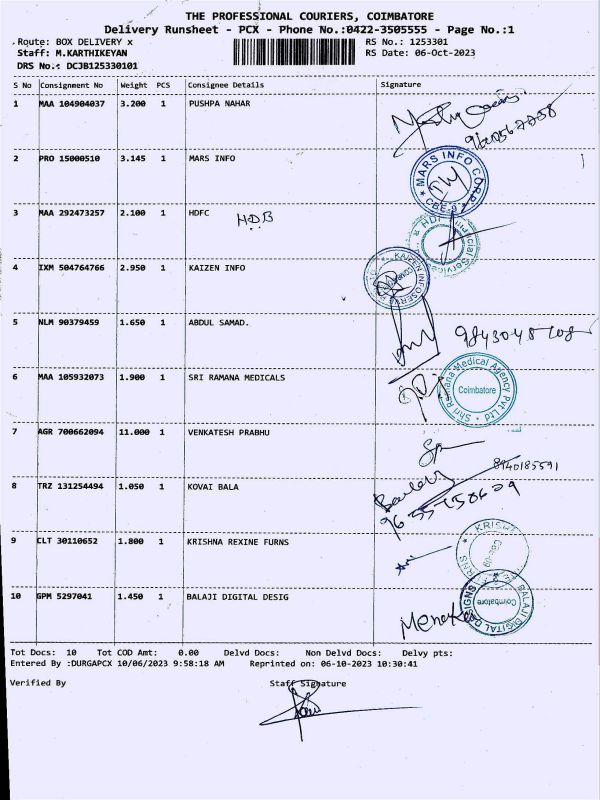 THE PROFESSIONAL COURIERS, COIMBATORE
Delivery Runsheet - PCX - Phone No.:0422-3505555 - Page No.:1
Route: BOX DELIVERY x RS No.: 1253301
Staff: M.KARTHIKEYAN RS Date: 06-Oct-2023
DRS No.: DCJB125330101
S No Consignment No Weight PCS Consignee Details Signature
1 MAA 104904037 3.200 1 PUSHPA NAHAR
2 PRO 15000510 3.145 1 MARS INFO
MARS INFO CORP CBE-9
3 MAA 292473257 2.100 1 HDFC H.D.B
4 IXM 504764766 2.950 1 KAIZEN INFO
KAIZEN INFOSERV
5 NLM 90379459 1.650 1 ABDUL SAMAD.
6 MAA 105932073 1.900 1 SRI RAMANA MEDICALS
Shri Ramana Medical Agency Pvt Ltd Coimbatore
7 AGR 700662094 11.000 1 VENKATESH PRABHU
8940185591
8 TRZ 131254494 1.050 1 KOVAI BALA
9 CLT 30110652 1.800 1 KRISHNA REXINE FURNS
10 GPM 5297041 1.450 1 BALAJI DIGITAL DESIG
BALAJI DIGITAL DESIGNS Coimbatore
Tot Docs: 10 Tot COD Amt: 0.00 Delvd Docs: Non Delvd Docs: Delvy pts:
Entered By :DURGAPCX 10/06/2023 9:58:18 AM Reprinted on: 06-10-2023 10:30:41
Verified By Staff Signature